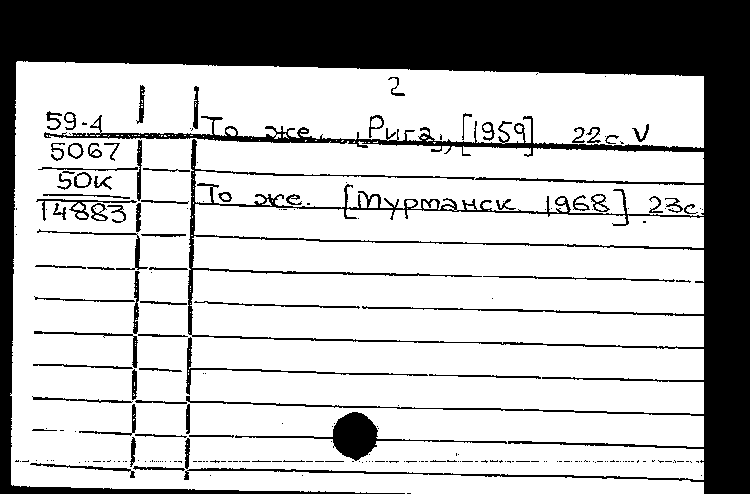 2
59-4 То же. [Рига], [1959] 22с. V
5067
50к То же. [Мурманск 1968] 23с.
14883